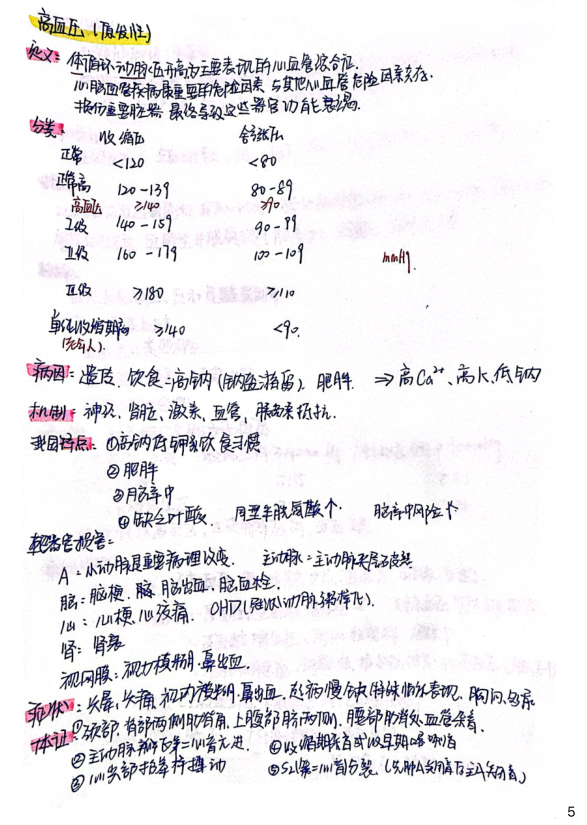 高血压(原发性)
定义:体循环动脉压升高为主要表现的心血管综合征.
心脑血管疾病最重要的危险因素,与其他心血管危险因素共存.
损伤重要脏器,最终导致这些器官功能衰竭.
分类: 收缩压 舒张压
正常 <120 <80
正常高 120-139 80-89
高血压 ≥140 ≥90
I级 140-159 90-99
II级 160-179 100-109 mmHg.
≥180 ≥110
单纯收缩期高 ≥140 <90.
(老年人).
病因:遗传.饮食:高钠(钠盐潴留).肥胖. ⇒高Ca²⁺、高K、低钠
机制:神经、肾脏、激素、血管、胰岛素抵抗.
我国特点:①高钠低钾饮食习惯
②肥胖
③脑卒中
④缺乏叶酸 同型半胱氨酸个. 脑卒中风险个
靶器官损害:
A:小动脉最重要病理改变. 主动脉:主动脉夹层
脑:脑梗.脑出血.脑血栓.
心:心梗.心绞痛. CHD(冠状动脉粥样硬化).
肾:肾衰
视网膜:视力模糊.鼻出血.
症状:头晕,头痛,视力模糊,鼻出血,起病慢缺乏特殊临床表现,胸闷,
体征:①颈部,背部两侧肋脊角,上腹部脐两侧,腰部肋脊处血管杂音.
②主动脉瓣区第二心音亢进. ④收缩期杂音或收缩早期喀喇音
③心尖部抬举样搏动 ⑤S2(第二心音)分裂.
5